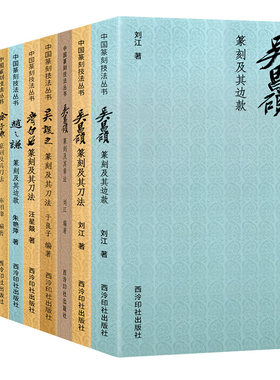 中国篆刻技法丛书
徐三庚
篆刻及其刀法
编著
西泠印社出版社
中国篆刻技法丛书
趙之謙
篆刻及其边款
朱艳萍 著
西泠印社出版社
中国篆刻技法丛书
齊白石
篆刻及其刀法
汪星燚 著
西泠印社出版社
中国篆刻技法丛书
吴讓之
篆刻及其刀法
于良子 编著
西泠印社出版社
中国篆刻技法丛书
吴昌碩
篆刻及其章法
刘江 编著
西泠印社出版社
中国篆刻技法丛书
吴昌碩
篆刻及其刀法
刘江 著
西泠印社出版社
中国篆刻技法丛书
吴昌碩
篆刻及其边款
刘江 著
西泠印社出版社
刘江 著
吴昌碩
篆刻及其边款
西泠印社出版社